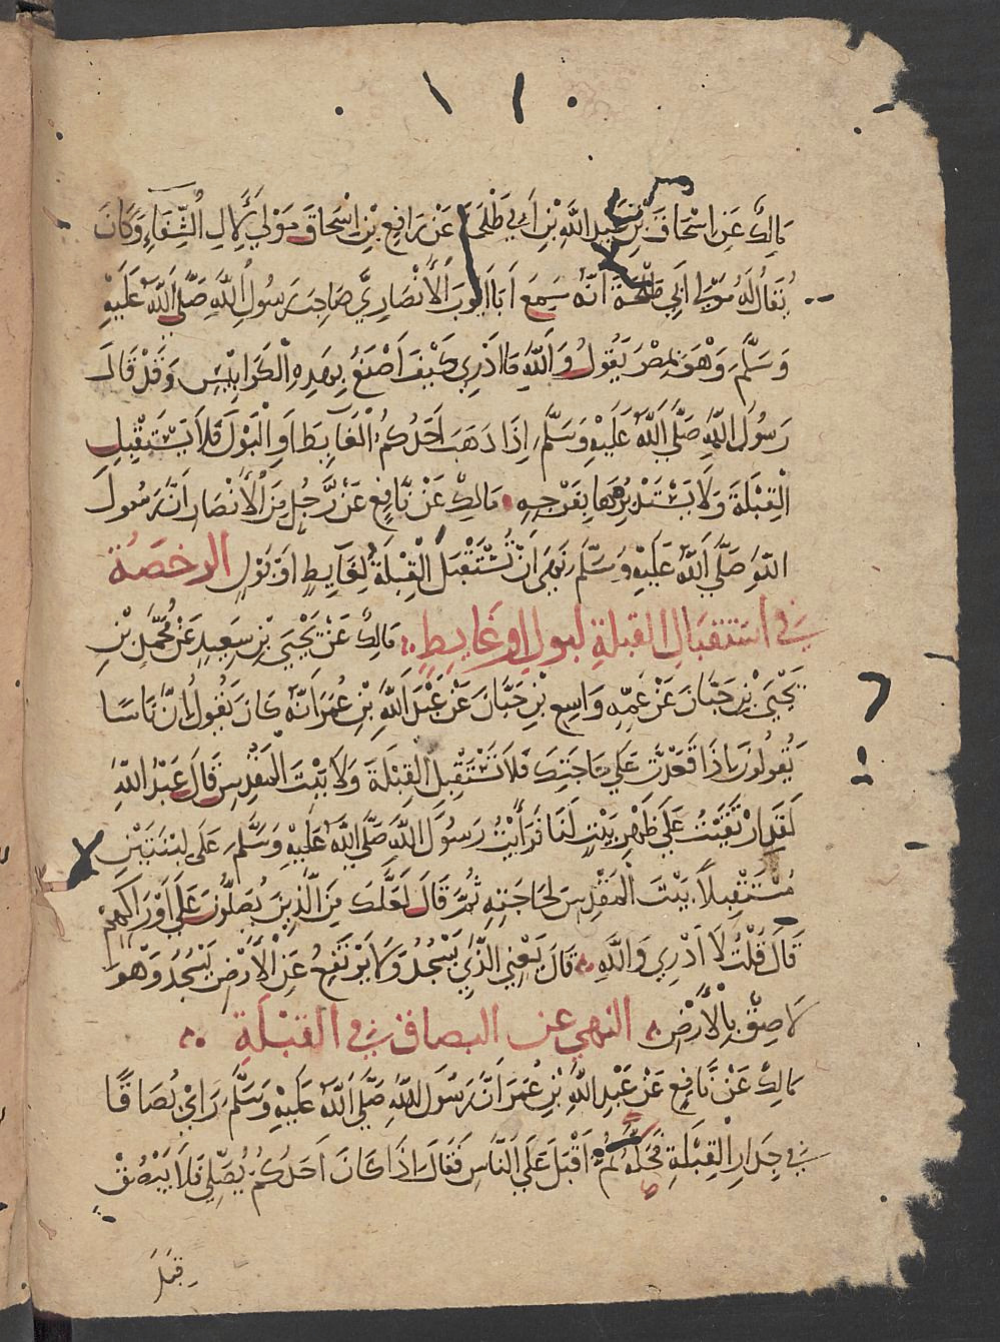 مَالِكٌ عَنِ اسْحَاقَ بْنِ عَبْدِ اللَّهِ بْنِ أَبِي طَلْحَةَ عَنْ رَافِعِ بْنِ اسْحَاقَ مَوْلًى لِآلِ الشِّفَاءِ وَكَانَ
يُقَالُ لَهُ مَوْلَى أَبِي طَلْحَةَ أَنَّهُ سَمِعَ أَبَا أَيُّوبَ الْأَنْصَارِيَّ صَاحِبَ رَسُولِ اللَّهِ صَلَّى اللَّهُ عَلَيْهِ
وَسَلَّمَ وَهْوَ بِمِصْرَ يَقُولُ وَاللَّهِ مَا أَدْرِي كَيْفَ أَصْنَعُ بِهَذِهِ الْكَرَابِيْسِ وَقَدْ قَالَ
رَسُولُ اللَّهِ صَلَّى اللَّهُ عَلَيْهِ وَسَلَّمَ إِذَا ذَهَبَ أَحَدُكُمُ الْغَايِطَ أَوِ الْبَوْلَ فَلَا يَسْتَقْبِلِ
الْقِبْلَةَ وَلَا يَسْتَدْبِرْهَا بِفَرْجِهِ مَالِكٌ عَنْ نَّافِعٍ عَنْ رَّجُلٍ مِنَ الْأَنْصَارِ أَنَّ رَسُولَ
اللَّهِ صَلَّى اللَّهُ عَلَيْهِ وَسَلَّمَ نَهَى أَنْ تُسْتَقْبَلَ الْقِبْلَةُ لِغَايِطٍ أَوْ بَوْلٍ الرخصَة
في استقبال القبلةِ لبول او غايطٍ مَالِكٌ عَنْ يَحْيَى بْنِ سَعِيدٍ عَنْ مُحَمَّدِ بْنِ
يَحْيَى بْنِ حَبَّانَ عَنْ عَمِّهِ وَاسِعِ بْنِ حَبَّانَ عَنْ عَبْدِ اللَّهِ بْنِ عُمَرَ أَنَّهُ كَانَ يَقُولُ إِنَّ نَاسًا
يَقُولُونَ إِذَا قَعَدْتَ عَلَى حَاجَتِكَ فَلَا تَسْتَقْبِلِ الْقِبْلَةَ وَلَا بَيْتَ الْمَقْدِسِ قَالَ عَبْدُ اللَّهِ
لَقَدِ ارْتَقَيْتُ عَلَى ظَهْرِ بَيْتٍ لَنَا فَرَأَيْتُ رَسُولَ اللَّهِ صَلَّى اللَّهُ عَلَيْهِ وَسَلَّمَ عَلَى لَبِنَتَيْنِ
مُسْتَقْبِلًا بَيْتَ الْمَقْدِسِ لِحَاجَتِهِ ثُمَّ قَالَ لَعَلَّكَ مِنَ الَّذِينَ يُصَلُّونَ عَلَى أَوْرَاكِهِمْ
قَالَ قُلْتُ لَا أَدْرِي وَاللَّهِ قَالَ يَعْنِي الَّذِي يَسْجُدُ وَلَا يَرْتَفِعُ عَنِ الْأَرْضِ يَسْجُدُ وَهْوَ
لَاصِقٌ بِالْأَرْضِ النهي عن البصاق في القبْلَةِ
مَالِكٌ عَنْ نَّافِعٍ عَنْ عَبْدِ اللَّهِ بْنِ عُمَرَ أَنَّ رَسُولَ اللَّهِ صَلَّى اللَّهُ عَلَيْهِ وَسَلَّمَ رَأَى بُصَاقًا
في جِدَارِ الْقِبْلَةِ فَحَكَّهُ ثُمَّ أَقْبَلَ عَلَى النَّاسِ فَقَالَ إِذَا كَانَ أَحَدُكُمْ يُصَلِّي فَلَا يَبْصُقْ
قِبَلَ